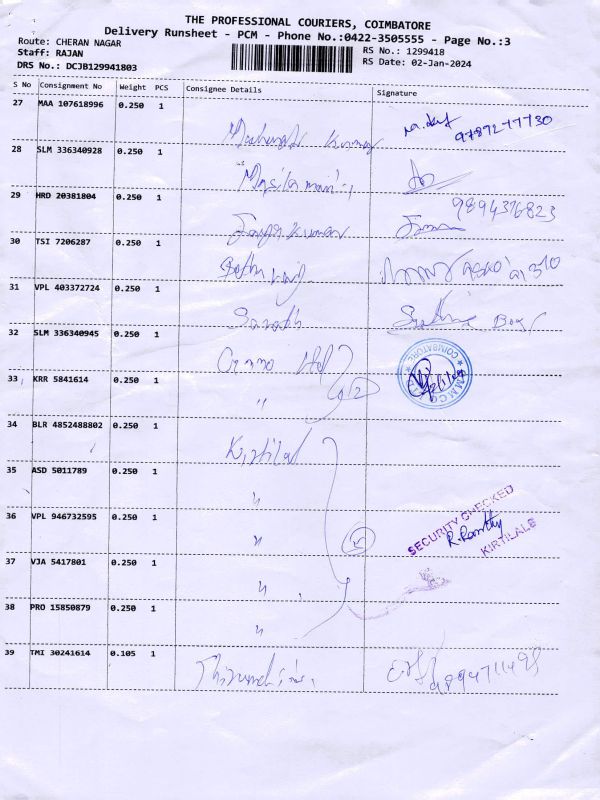 THE PROFESSIONAL COURIERS, COIMBATORE
Delivery Runsheet - PCM - Phone No.:0422-3505555 - Page No.:3
Route: CHERAN NAGAR
RS No.: 1299418
Staff: RAJAN
RS Date: 02-Jan-2024
DRS No.: DCJB129941803
S No Consignment No Weight PCS Consignee Details Signature
27 MAA 107618996 0.250 1
9787277730
28 SLM 336340928 0.250 1
29 HRD 20381804 0.250 1 Kumar
9894376823
30 TSI 7206287 0.250 1
31 VPL 403372724 0.250 1 Sarath
32 SLM 336340945 0.250 1
COIMBATORE
33 KRR 5841614 0.250 1 "
34 BLR 4852488802 0.250 1 Kirtilal
35 ASD 5011789 0.250 1 "
36 VPL 946732595 0.250 1 "
SECURITY CHECKED
KIRTILALS
37 VJA 5417801 0.250 1 "
38 PRO 15850879 0.250 1 "
39 TMI 30241614 0.105 1